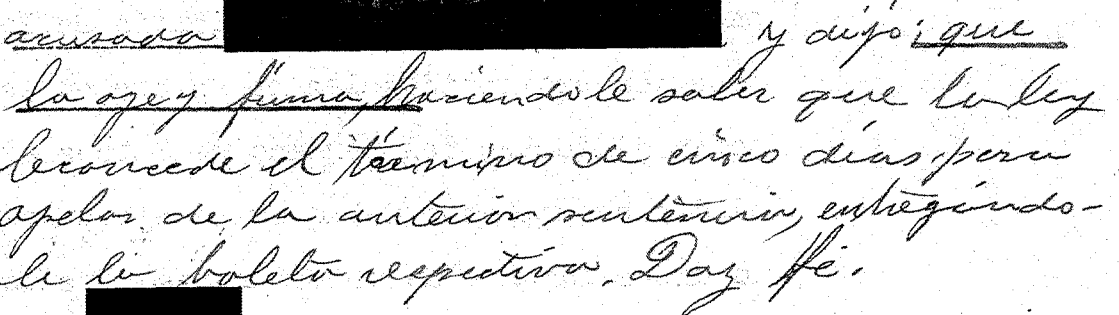 acusada y dijo: que
la oye y firma, haciéndole saber que la ley
le concede el término de cinco días para
apelar de la anterior sentencia, entregándo-
le la boleta respectiva. Doy fé.